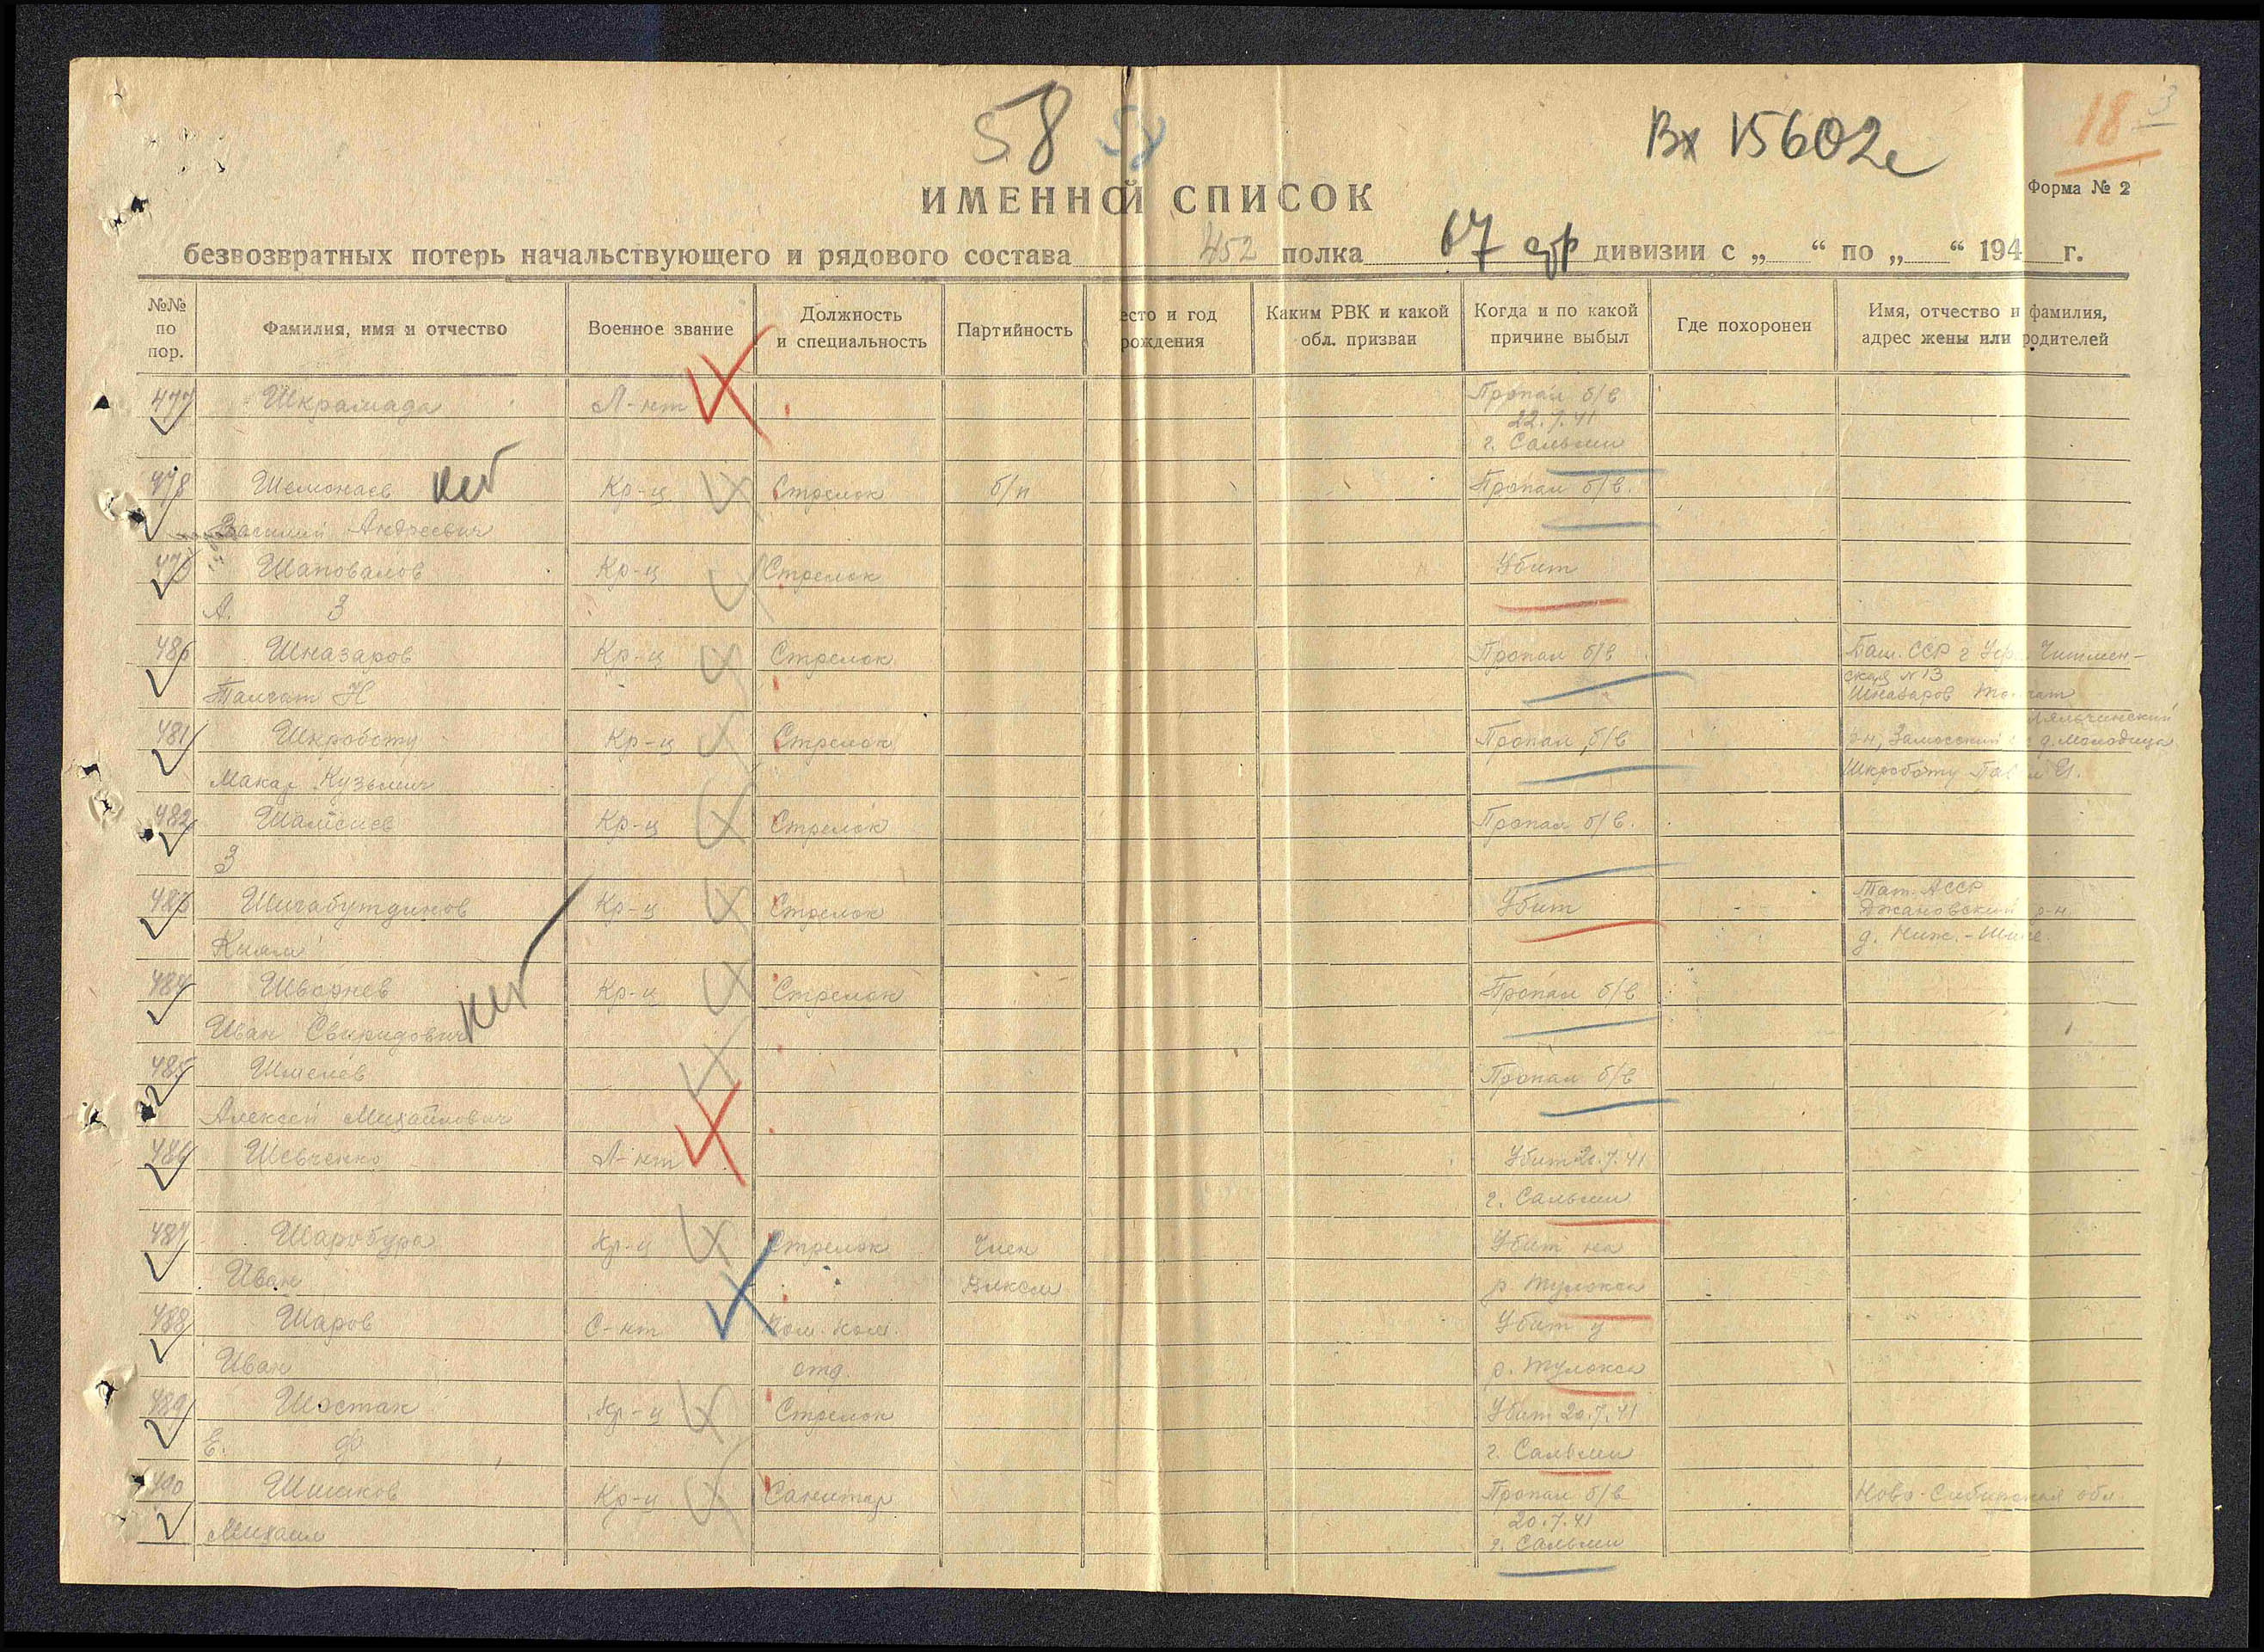 58
Вх 15602с
18
Форма № 2
ИМЕННОЙ СПИСОК
безвозвратных потерь начальствующего и рядового состава 452 полка 67 дивизии с „ “ по „ “ 194 г.
№№ по пор.
Фамилия, имя и отчество
Военное звание
Должность и специальность
Партийность
есто и год рождения
Каким РВК и какой обл. призван
Когда и по какой причине выбыл
Где похоронен
Имя, отчество и фамилия, адрес жены или родителей
477 Шкрамада Л-нт Пропал б/в
22.7.41
г. Сальми
478 Шемонаев Кр-ц Стрелок б/п Пропал б/в.
Василий Андреевич
479 Шаповалов Кр-ц Стрелок Убит
А. З
480 Шназаров Кр-ц Стрелок Пропал б/в Баш. ССР г
ская №13
Талгат Н Шназаров
481 Шкроботу Кр-ц Стрелок Пропал б/в р-н, д. Молодица
Макар Кузьмич Шкроботу
482 Кр-ц Стрелок Пропал б/в.
З
483 Шигабутдинов Кр-ц Стрелок Убит Тат. АССР
р-н
д. Ниж.-
484 Шварнев Кр-ц Стрелок Пропал б/в
Иван Свиридович
485 Шмелев Пропал б/в
Алексей Михайлович
486 Шевченко Л-нт Убит 7.41
г. Сальми
487 Шаробура Кр-ц Стрелок Член Убит на
Иван Влксм р. Тулокса
488 Шаров С-нт Пом. ком. Убит у
Иван отд. р. Тулокса
489 Шостак Кр-ц Стрелок Убит 20.7.41
Е. Ф г. Сальми
490 Шишков Кр-ц Санитар Пропал б/в Ново-Сибирская обл.
20.7.41
Михаил г. Сальми